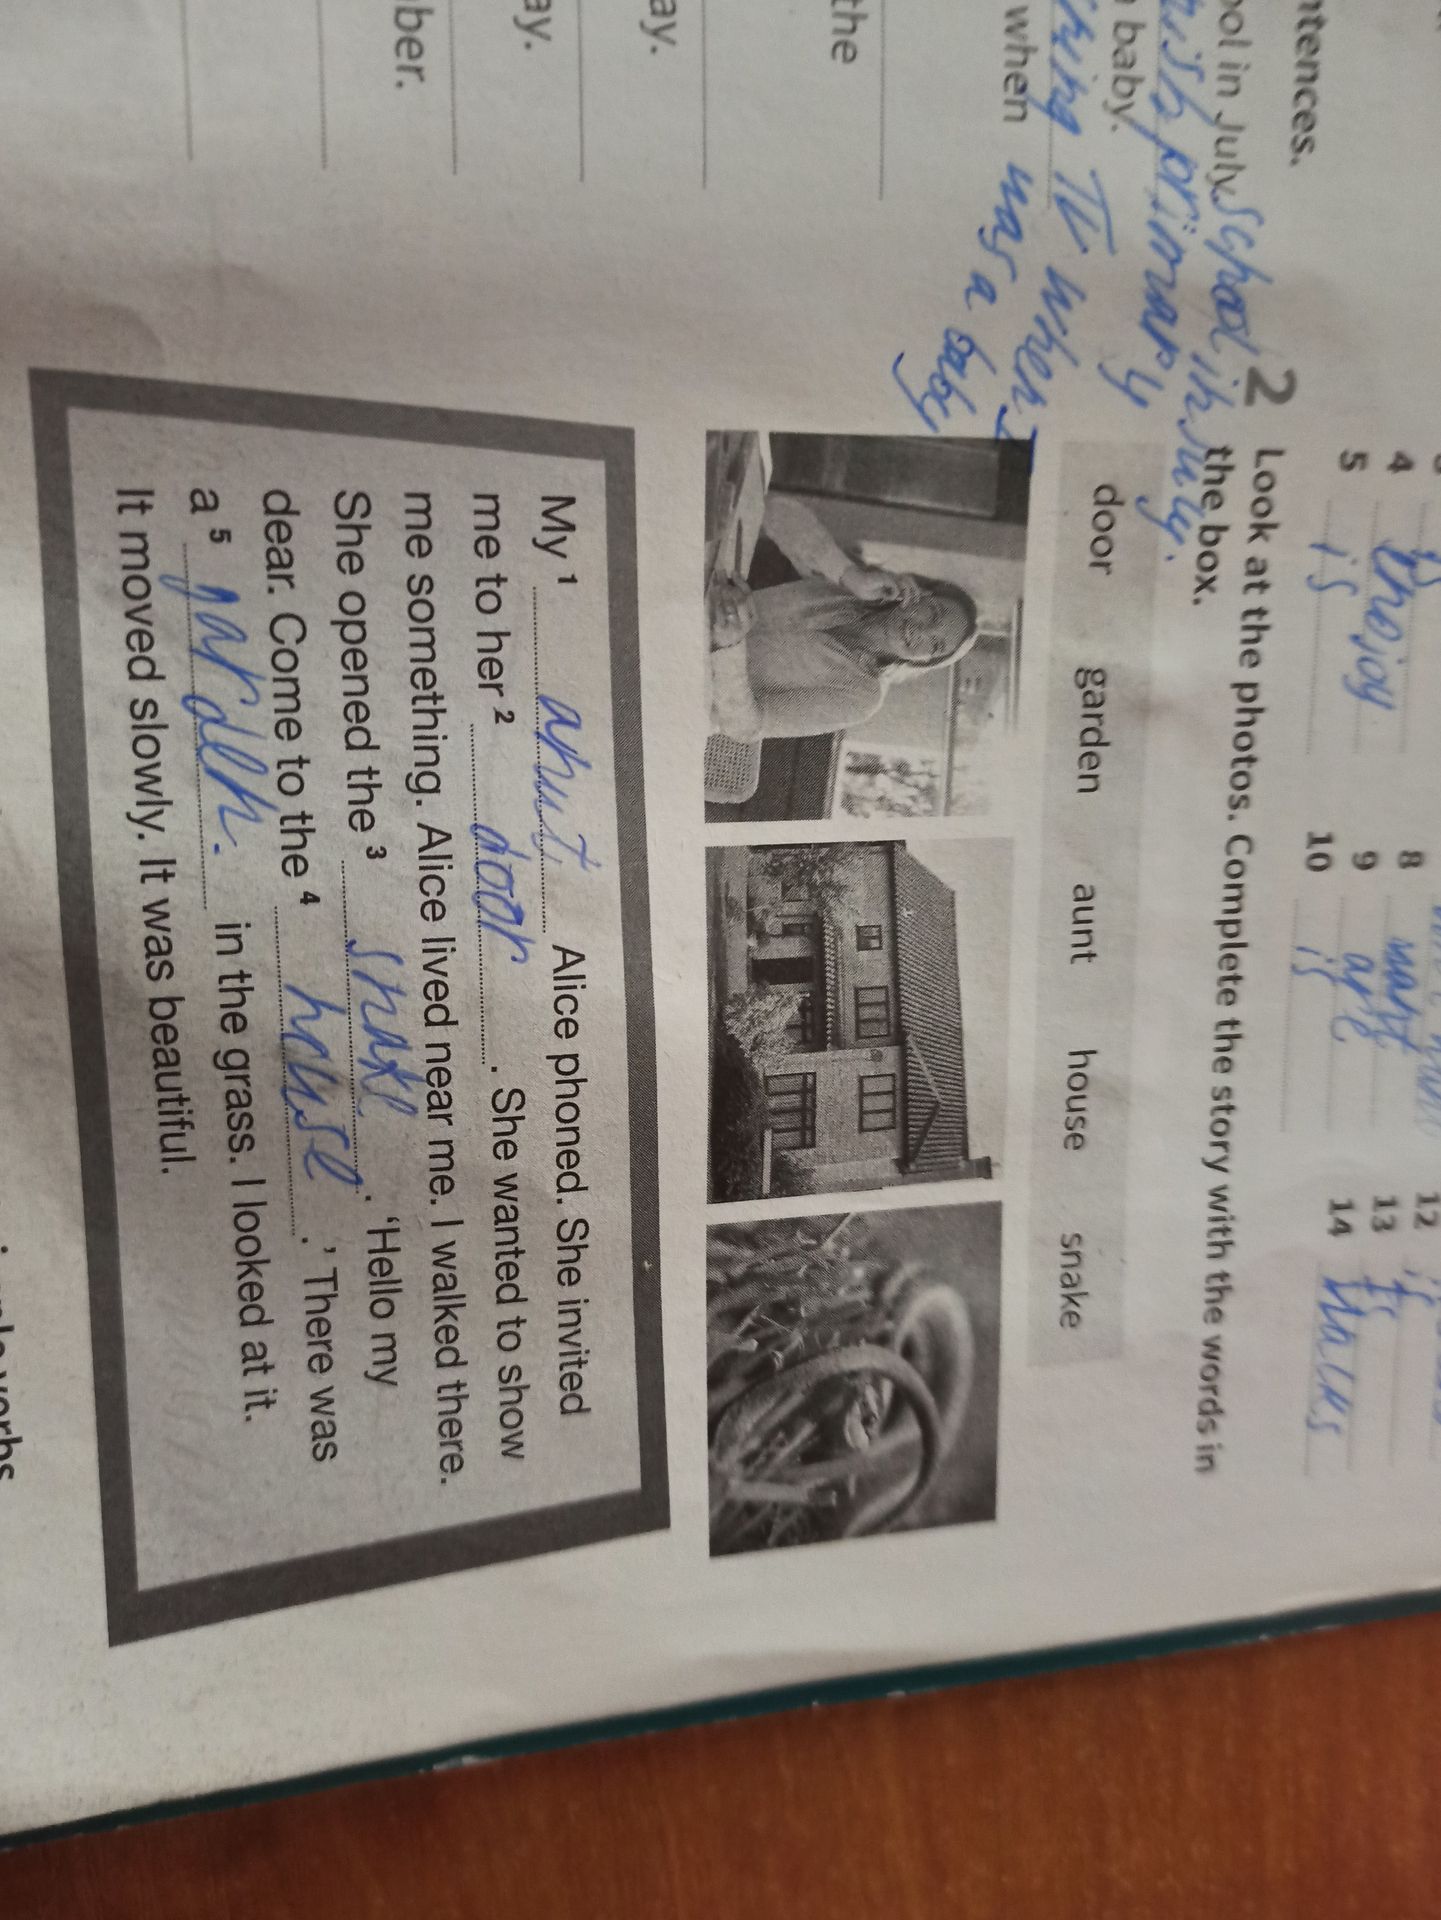 ntences.
ool in July.
school in July.
baby.
when
was a baby
the
ay.
ay.
ber.
4 enjoy
5 is
8
9 are
10 is
12
13 is
14 walks
2 Look at the photos. Complete the story with the words in
the box.
door garden aunt house snake
My 1 anut Alice phoned. She invited
me to her 2 door . She wanted to show
me something. Alice lived near me. I walked there.
She opened the 3 snake . ‘Hello my
dear. Come to the 4 house .’ There was
a 5 garden. in the grass. I looked at it.
It moved slowly. It was beautiful.